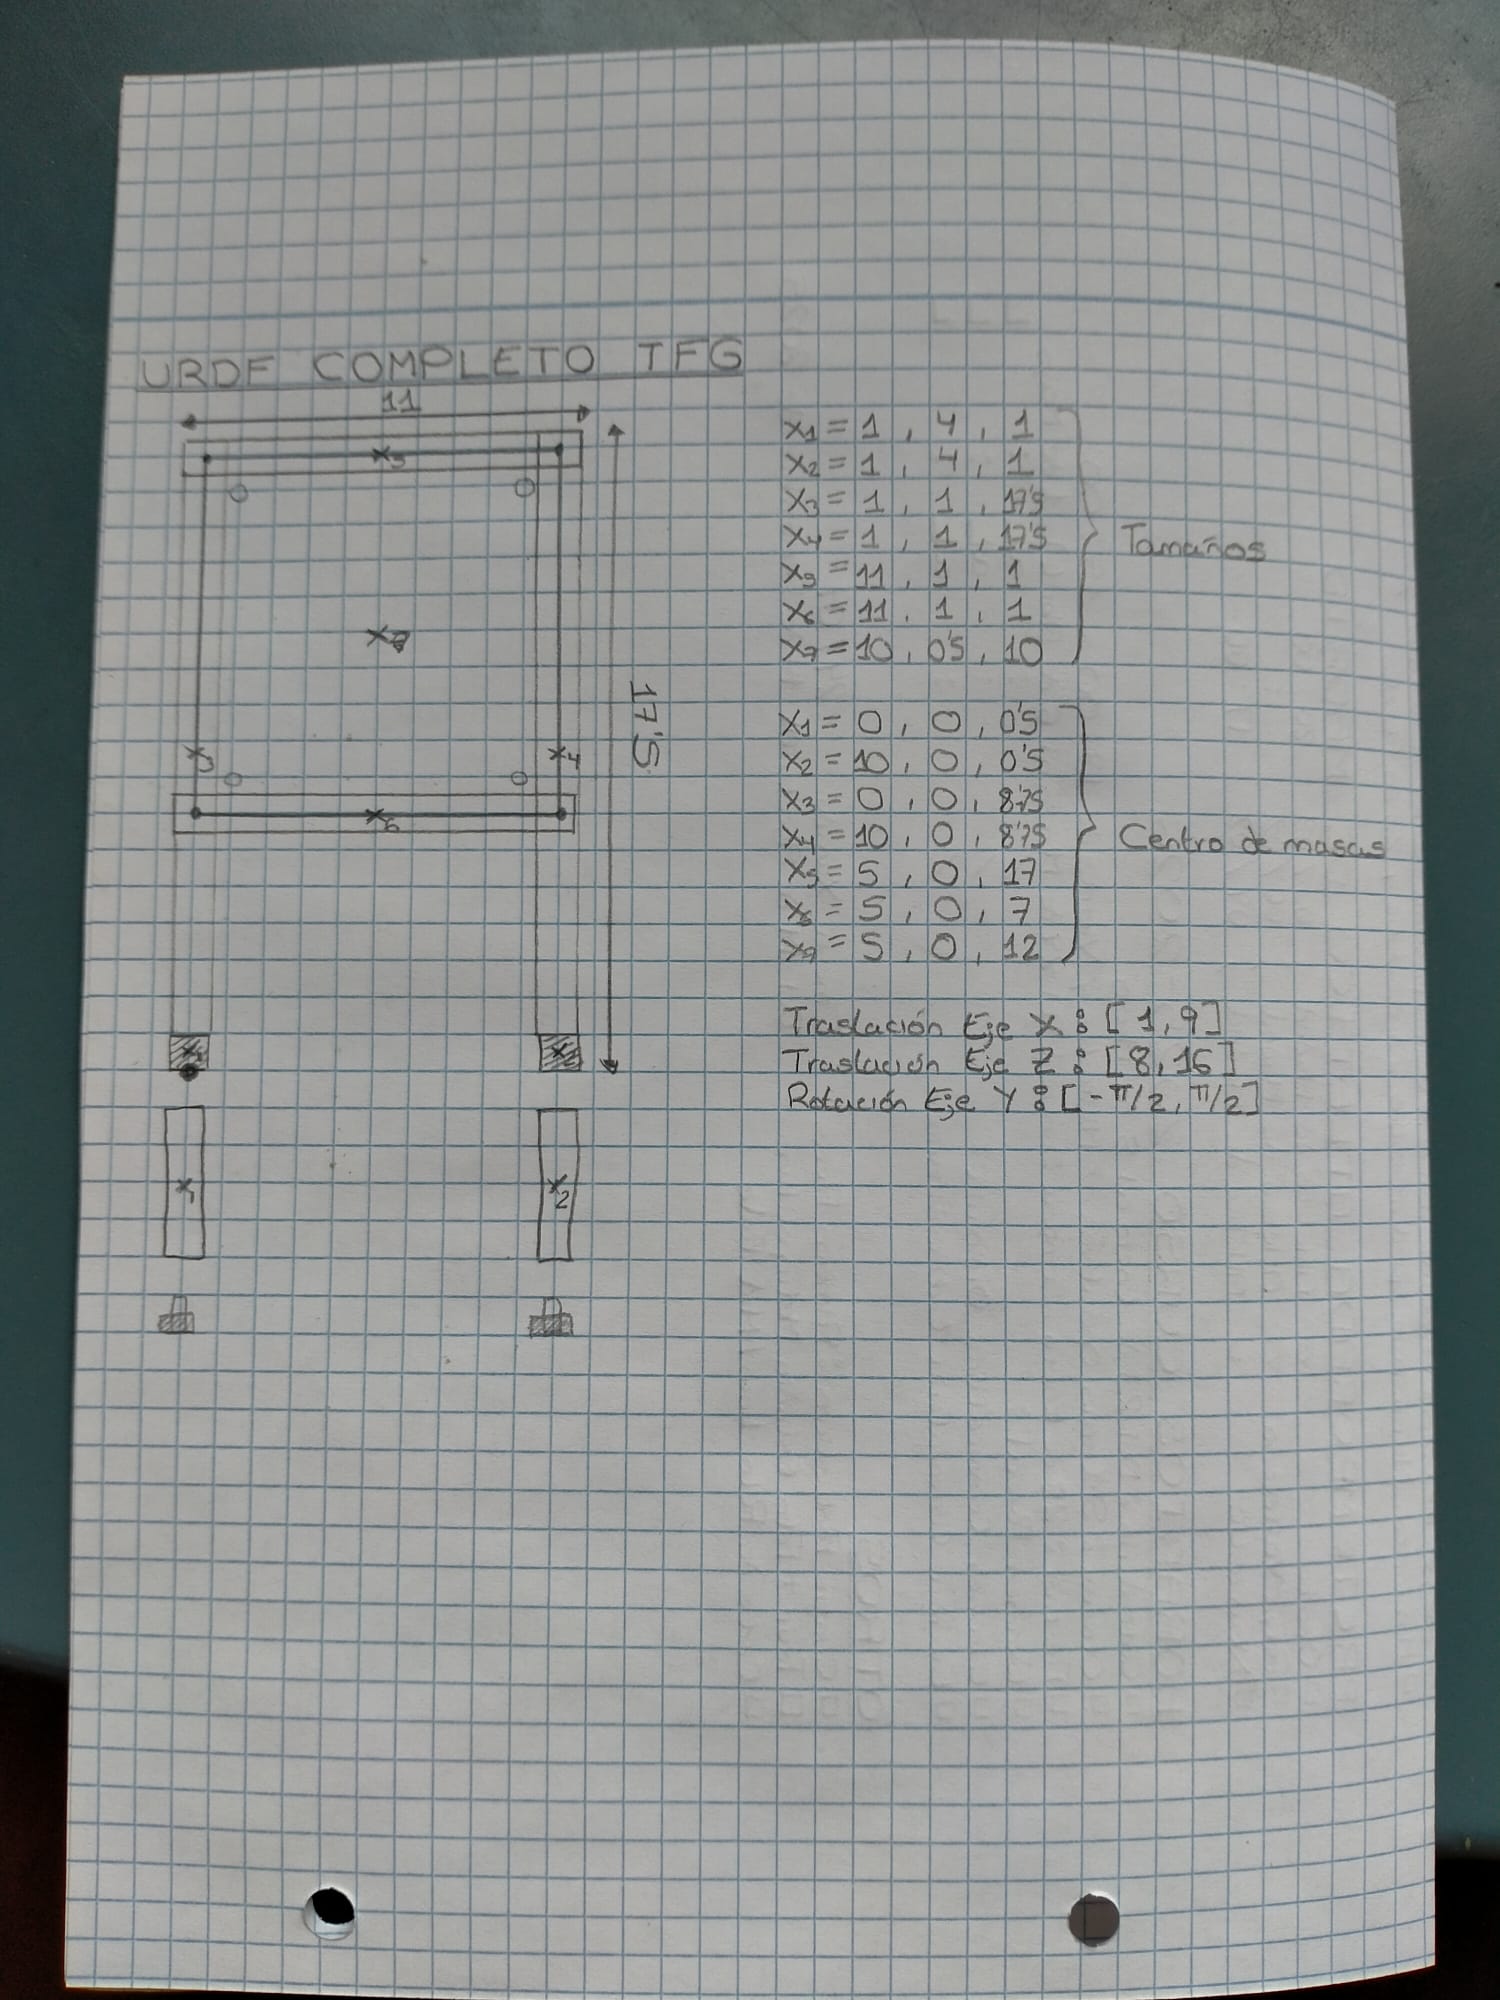 URDF COMPLETO TFG
11
x5
x7
17'5
x3
x4
x6
x1
x2
x1
x2
x1 = 1 , 4 , 1
x2 = 1 , 4 , 1
x3 = 1 , 1 , 17'5
x4 = 1 , 1 , 17'5
x5 = 11 , 1 , 1
x6 = 11 , 1 , 1
x7 = 10 , 0'5 , 10
Tamaños
x1 = 0 , 0 , 0'5
x2 = 10 , 0 , 0'5
x3 = 0 , 0 , 8'75
x4 = 10 , 0 , 8'75
x5 = 5 , 0 , 17
x6 = 5 , 0 , 7
x7 = 5 , 0 , 12
Centro de masas
Traslación Eje X : [1, 9]
Traslación Eje Z : [8, 16]
Rotación Eje Y : [-π/2, π/2]